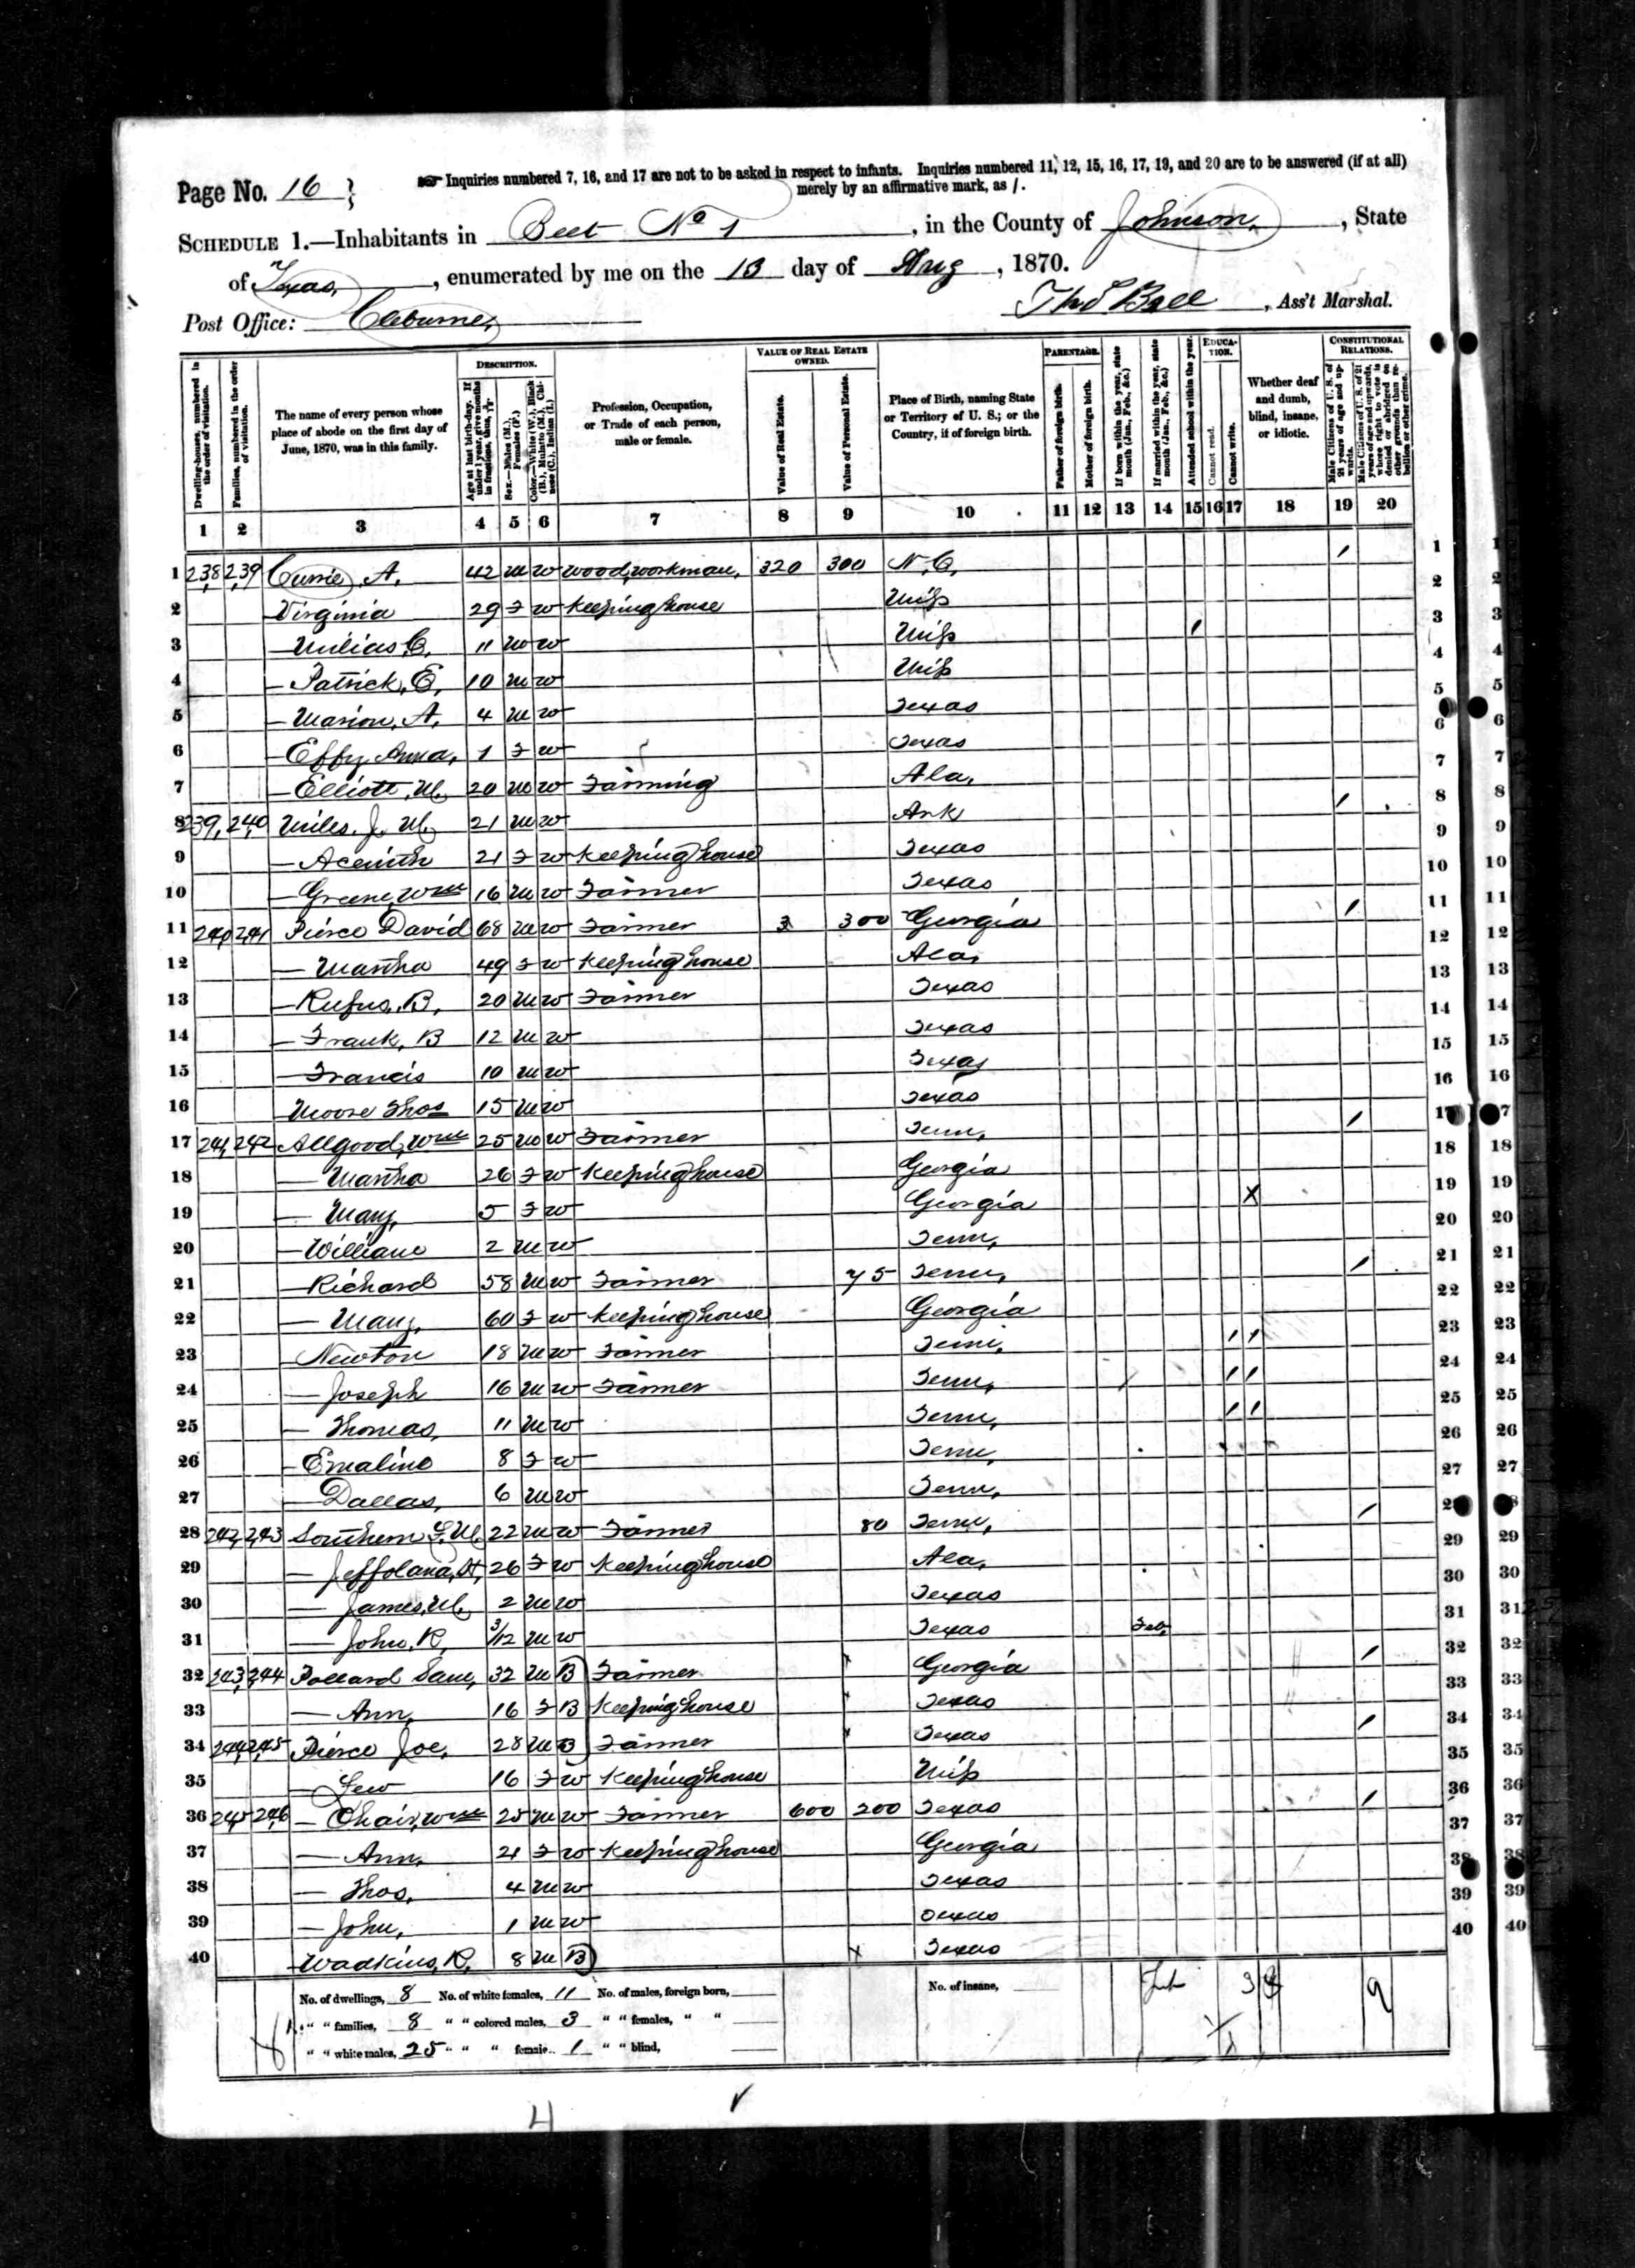 Page No. 16
Inquiries numbered 7, 16, and 17 are not to be asked in respect to infants. Inquiries numbered 11, 12, 15, 16, 17, 19, and 20 are to be answered (if at all)
merely by an affirmative mark, as /.
SCHEDULE 1.—Inhabitants in Beet No 1, in the County of Johnson, State
of Texas, enumerated by me on the 13 day of Aug, 1870.
Post Office: Cleburne, Thos Ball, Ass't Marshal.
Dwelling-houses, numbered in the order of visitation.
Families, numbered in the order of visitation.
The name of every person whose place of abode on the first day of June, 1870, was in this family.
DESCRIPTION.
Age at last birth-day. If under 1 year, give months in fractions, thus, 3/12
Sex.—Males (M.), Females (F.)
Color.—White (W.), Black (B.), Mulatto (M.), Chinese (C.), Indian (I.)
Profession, Occupation, or Trade of each person, male or female.
VALUE OF REAL ESTATE OWNED.
Value of Real Estate.
Value of Personal Estate.
Place of Birth, naming State or Territory of U. S.; or the Country, if of foreign birth.
PARENTAGE.
Father of foreign birth.
Mother of foreign birth.
If born within the year, state month (Jan., Feb., &c.)
If married within the year, state month (Jan., Feb., &c.)
EDUCATION.
Attended school within the year.
Cannot read.
Cannot write.
Whether deaf and dumb, blind, insane, or idiotic.
CONSTITUTIONAL RELATIONS.
Male Citizens of U. S. of 21 years of age and upwards.
Male Citizens of U. S. of 21 years of age and upwards, whose right to vote is denied or abridged on other grounds than rebellion or other crime.
1 2 3 4 5 6 7 8 9 10 11 12 13 14 15 16 17 18 19 20
1 238 239 Currie, A. 42 M W wood workman, 320 300 N.C. / 1
2 Virginia 29 F W Keeping house Miss 2
3 — C. 11 M W Miss / 3
4 — Patrick, E. 10 M W Miss 4
5 — Marion, A. 4 M W Texas 5
6 — Effy Anna, 1 F W Texas 6
7 — Elliott, M. 20 M W Farming Ala. 7
8 239, 240 Miles, J. M. 21 M W Ark / 8
9 — 21 F W Keeping house Texas 9
10 — Greene, Wm 16 M W Farmer Texas 10
11 240 241 Pierce David 68 M W Farmer 300 Georgia / 11
12 — Martha 49 F W Keeping house Ala. 12
13 — Rufus, B. 20 M W Farmer Texas 13
14 — Frank, B 12 M W Texas 14
15 — Francis 10 M W Texas 15
16 Moore Thos 15 M W Texas 16
17 241, 242 Allgood, Wm 25 M W Farmer Tenn, / 17
18 — Martha 26 F W Keeping house Georgia 18
19 — Mary, 5 F W Georgia X 19
20 — William 2 M W Tenn, 20
21 — Richard 58 M W Farmer 75 Tenn, / 21
22 — Mary, 60 F W Keeping house Georgia 22
23 — Newton 18 M W Farmer Tenn, / / 23
24 — Joseph 16 M W Farmer Tenn, / / 24
25 — Thomas, 11 M W Tenn, / / 25
26 — Emaline 8 F W Tenn, 26
27 — Dallas, 6 M W Tenn, 27
28 242, 243 Southern F. M. 22 M W Farmer 80 Tenn, / 28
29 — Jeffolana, A, 26 F W Keeping house Ala, 29
30 — James, M. 2 M W Texas 30
31 — John, R, 3/12 M W Texas Feb, 31
32 243, 244 Pollard Sam, 32 M B Farmer Georgia / 32
33 — Ann, 16 F B Keeping house Texas 33
34 244 245 Pierce Joe, 28 M B Farmer Texas / 34
35 — 16 F W Keeping house Miss 35
36 245 246 — Ohair, Wm 25 M W Farmer 600 200 Texas / 36
37 — Ann, 21 F W Keeping house Georgia 37
38 — Thos, 4 M W Texas 38
39 — John, 1 M W Texas 39
40 Wadkins, R. 8 M B x Texas 40
No. of dwellings, 8 No. of white females, 11 No. of males, foreign born, No. of insane, 9
" " families, 8 " " colored males, 3 " " females, " "
" " white males, 25 " " " female.. 1 " " blind,
4